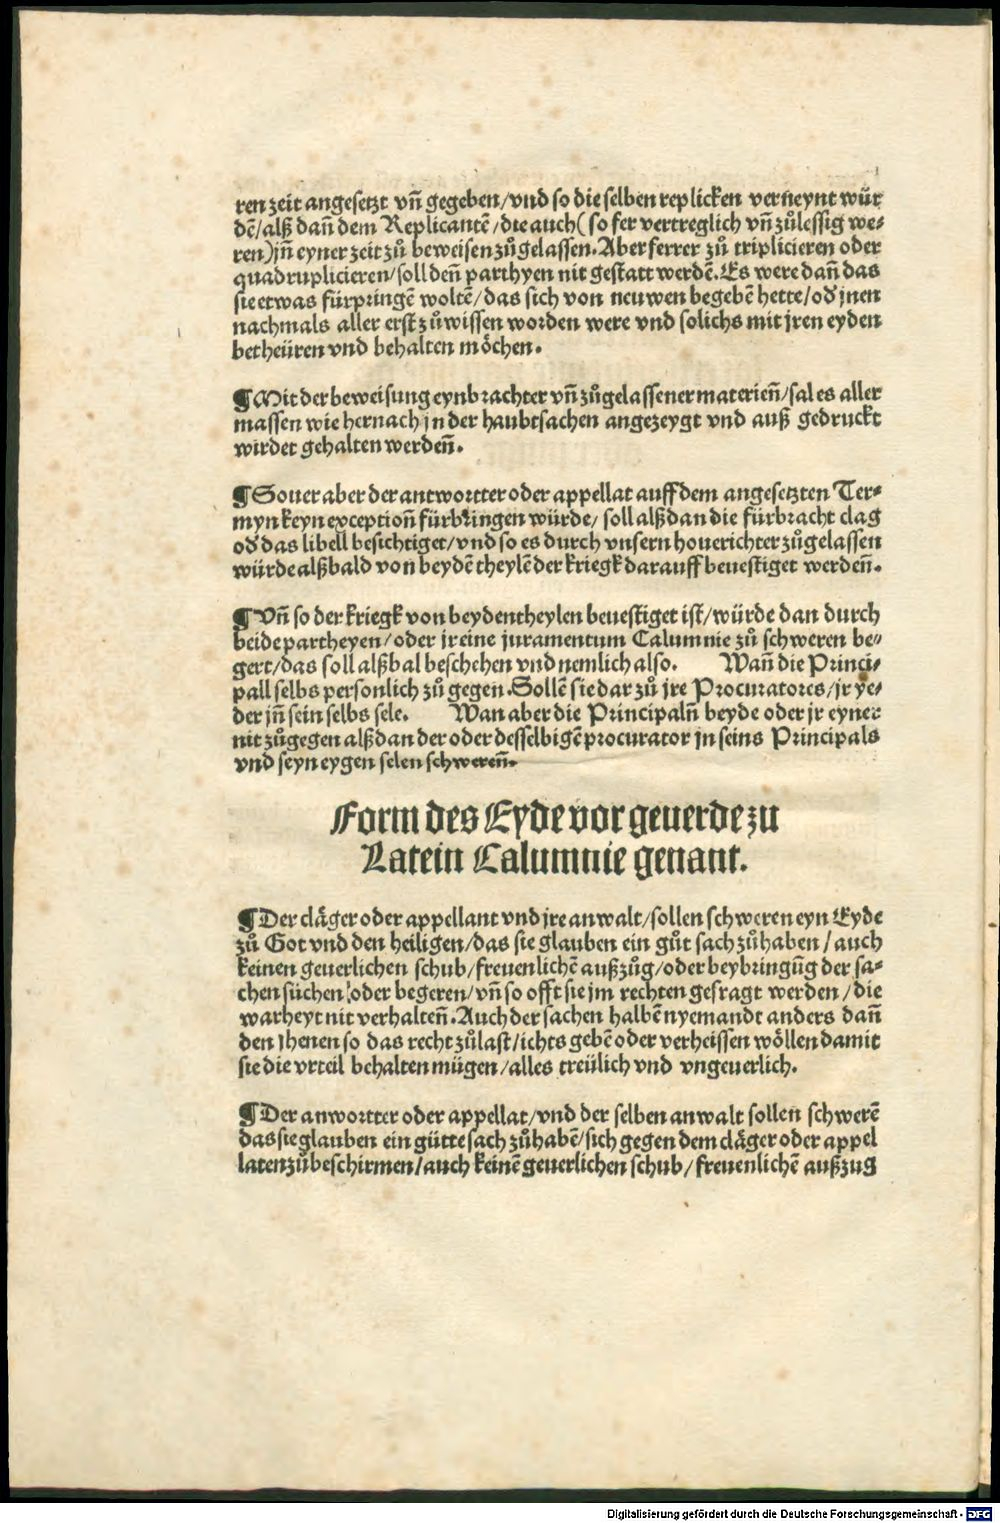 ren zeit angesetzt vñ gegeben/vnd so die selben replicken verneynt wür
dē/alß dañ dem Replicantē/die auch(so fer vertreglich vñ zůlessig we⸗
ren)jñ eyner zeit zů beweisen zůgelassen. Aber ferrer zů triplicieren oder
quadruplicieren/soll deñ parthyen nit gestatt werdē. Es were dañ das
sie etwas fürpringē woltē/das sich von neuwen begebē hette/oď jnen
nachmals aller erst zůwissen worden were vnd solichs mit jren eyden
betheüren vnd behalten möchen.
¶Mit der beweisung eynbrachter vñ zůgelassener materieñ/sal es aller
massen wie hernach jn der haubtsachen angezeygt vnd auß gedruckt
wirdet gehalten werdeñ.
¶Souer aber der antwortter oder appellat auff dem angesetzten Ter⸗
myn keyn exceptioñ fürbringen würde/ soll alßdan die fürbracht clag
oď das libell besichtiget/vnd so es durch vnsern houerichter zůgelassen
würde alßbald von beydē theylē der kriegk darauff beuestiget werdeñ.
¶Vñ so der kriegk von beydentheylen beuestiget ist/würde dan durch
beide partheyen/oder jr eine juramentum Calumnie zů schweren be⸗
gert/das soll alßbal beschehen vnd nemlich also. Wañ die Princi⸗
pall selbs personlich zů gegen. Sollē sie dar zů jre Procuratores/jr ye⸗
der jñ sein selbs sele. Wan aber die Principalñ beyde oder jr eyner
nit zůgegen alßdan der oder desselbigē procurator jn seins Principals
vnd seyn eygen selen schwereñ.
Form des Eyde vor geuerde zu
Latein Calumnie genant.
¶Der cläger oder appellant vnd jre anwalt/sollen schweren eyn Eyde
zů Got vnd den heiligen/das sie glauben ein gůt sach zůhaben/auch
keinen geuerlichen schub/freuenlichē außzůg/oder beybringūg der sa⸗
chen süchen/oder begeren/vñ so offt sie jm rechten gefragt werden/die
warheyt nit verhalteñ. Auch der sachen halbē nyemandt anders dañ
den jhenen so das recht zůlast/ichts gebē oder verheissen wöllen damit
sie die vrteil behalten mügen/alles treülich vnd vngeuerlich.
¶Der anwortter oder appellat/vnd der selben anwalt sollen schwerē
das sie glauben ein gütte sach zůhabē/sich gegen dem cläger oder appel
laten zůbeschirmen/auch keinē geuerlichen schub/freuenlichē außzug
Digitalisierung gefördert durch die Deutsche Forschungsgemeinschaft - DFG